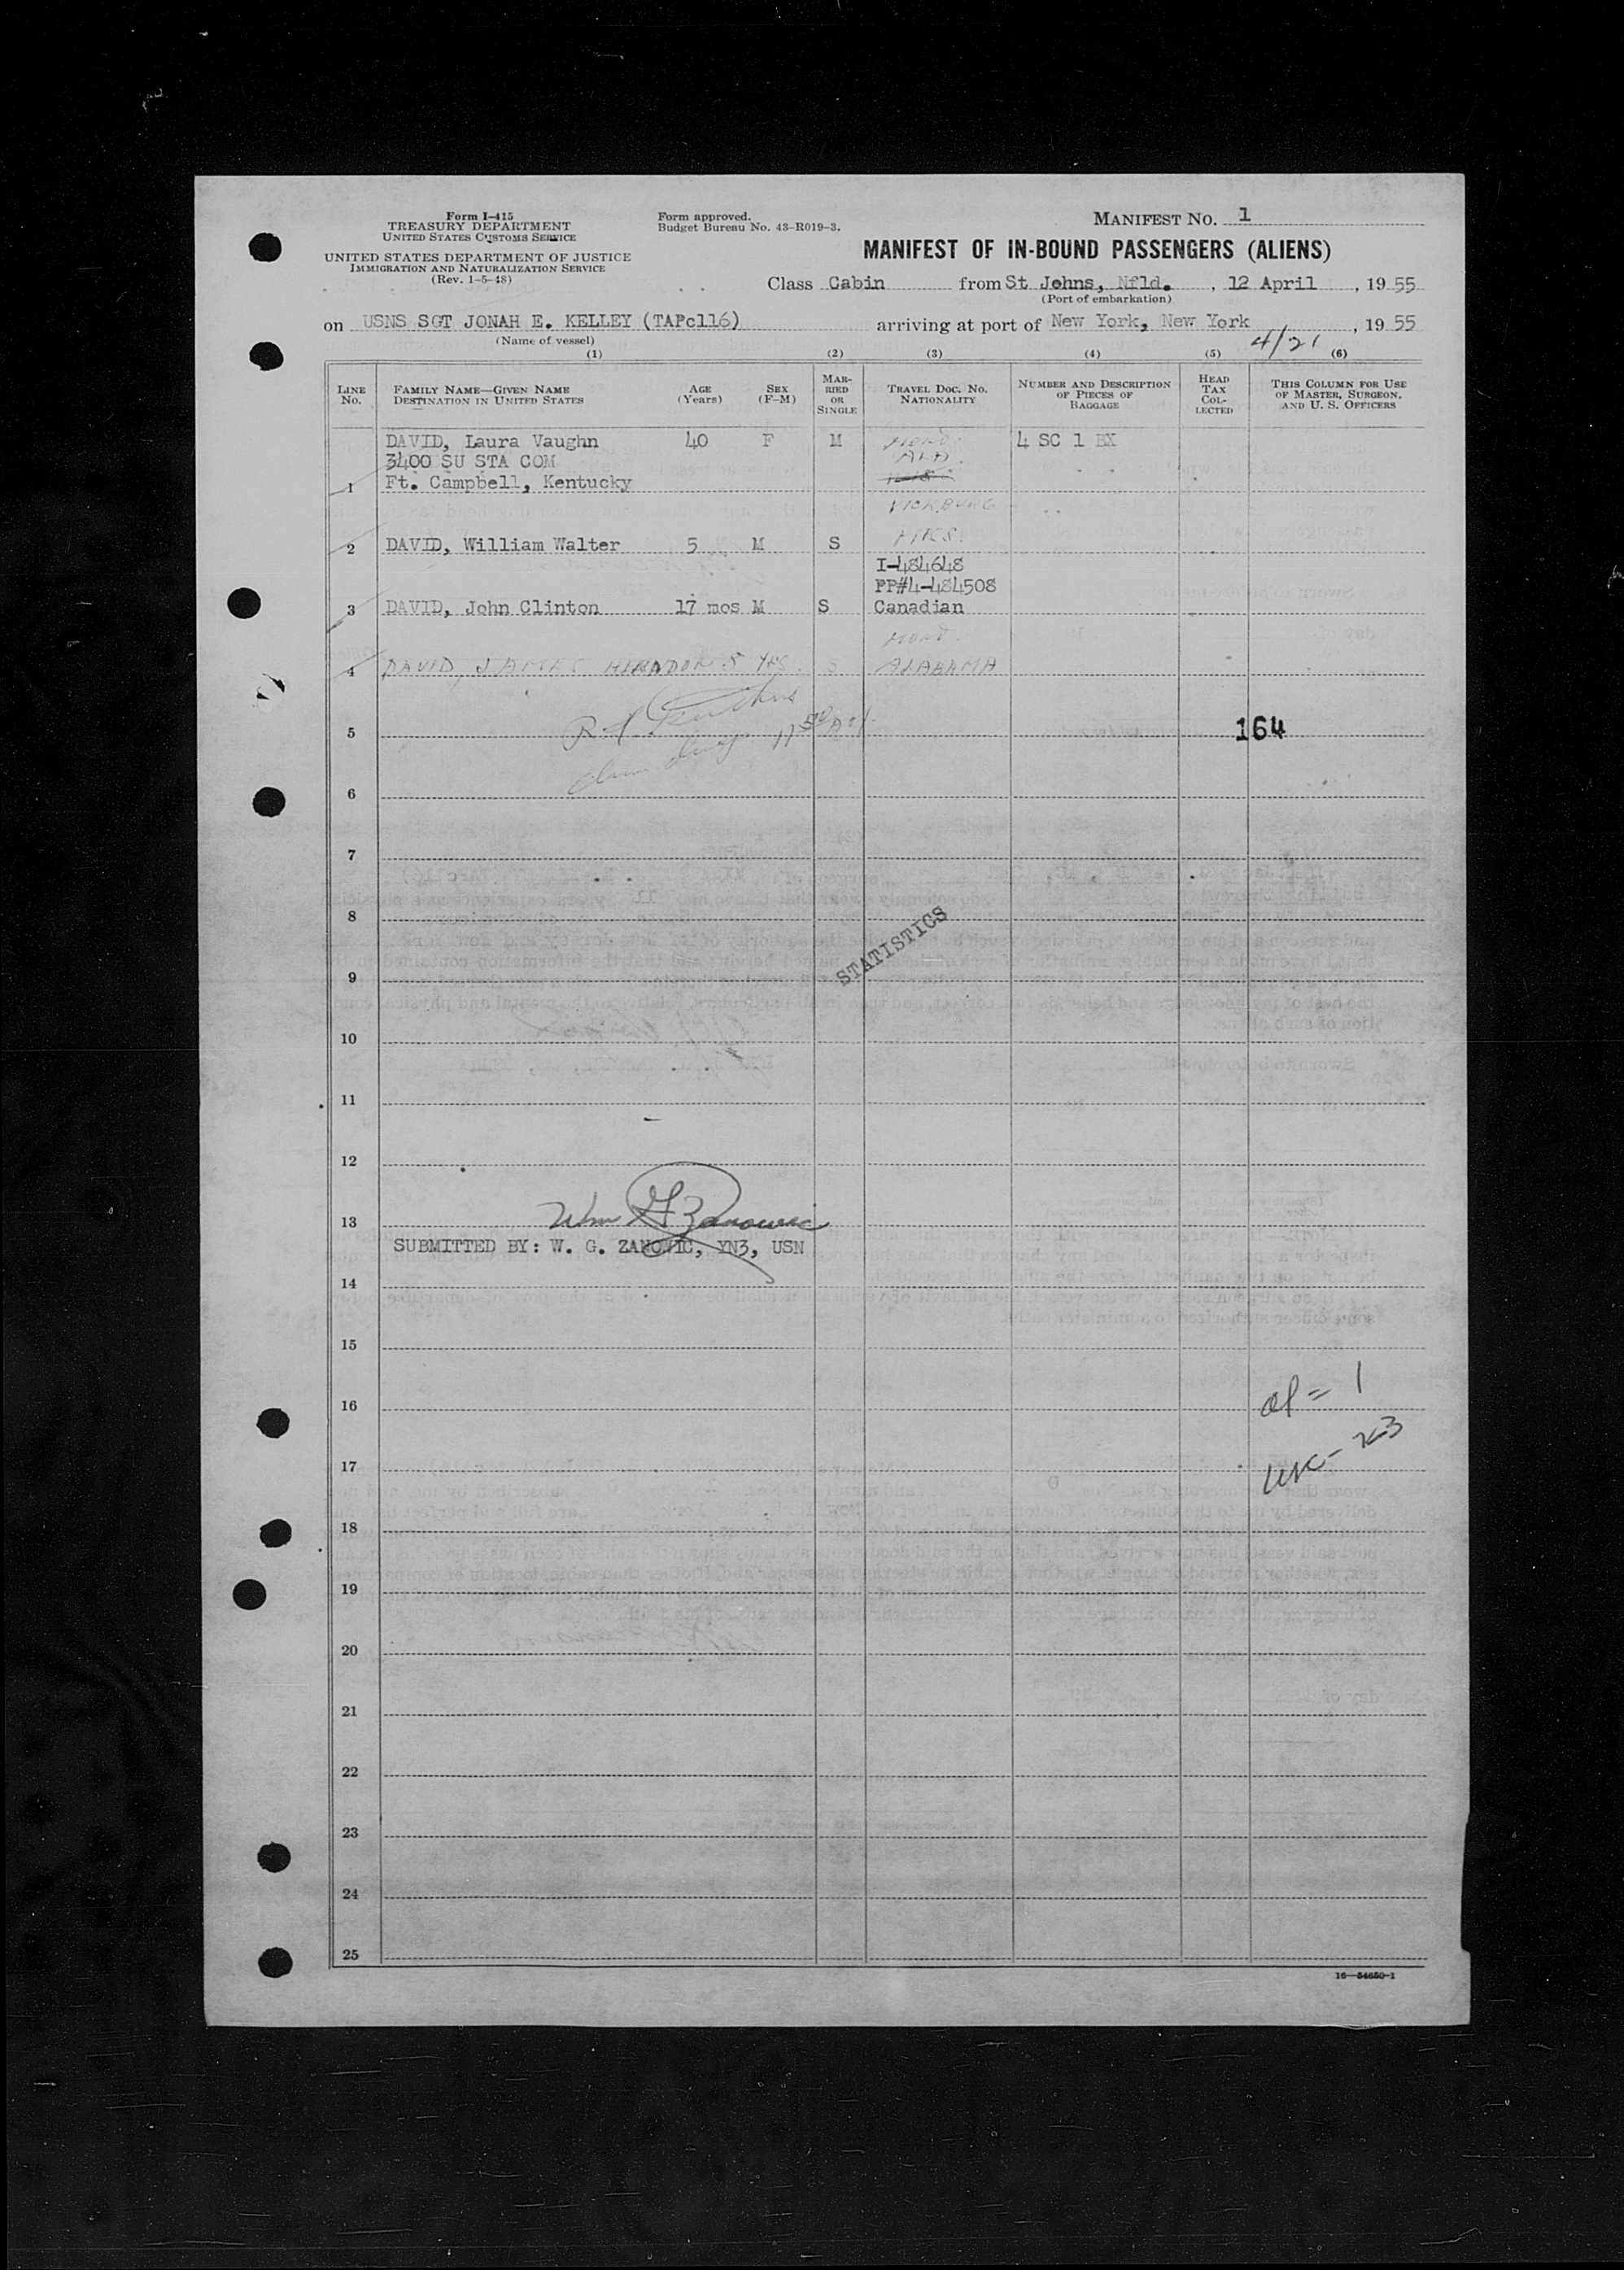 Form I-415
TREASURY DEPARTMENT
UNITED STATES CUSTOMS SERVICE
UNITED STATES DEPARTMENT OF JUSTICE
IMMIGRATION AND NATURALIZATION SERVICE
(Rev. 1-5-48)
Form approved.
Budget Bureau No. 43-R019-3.
MANIFEST NO. 1
MANIFEST OF IN-BOUND PASSENGERS (ALIENS)
Class Cabin from St Johns, Nfld. , 12 April , 19 55
(Port of embarkation)
on USNS SGT JONAH E. KELLEY (TAPc116) arriving at port of New York, New York 4/21 , 19 55
(Name of vessel)
(1) (2) (3) (4) (5) (6)
LINE No.
FAMILY NAME—GIVEN NAME
DESTINATION IN UNITED STATES
AGE (Years)
SEX (F-M)
MARRIED OR SINGLE
TRAVEL DOC. NO. NATIONALITY
NUMBER AND DESCRIPTION OF PIECES OF BAGGAGE
HEAD TAX COLLECTED
THIS COLUMN FOR USE OF MASTER, SURGEON, AND U. S. OFFICERS
DAVID, Laura Vaughn 40 F M 4 SC 1 BX
3400 SU STA COM ALA.
1 Ft. Campbell, Kentucky
VICKBURG
2 DAVID, William Walter 5 M S MISS.
I-484648
PP#4-484508
3 DAVID, John Clinton 17 mos M S Canadian
4 DAVID, JAMES HERNDON 5 YRS. S ALABAMA
5 164
6
7
8
STATISTICS
9
10
11
12
13 Wm G Zanowic
SUBMITTED BY: W. G. ZANOWIC, YN3, USN
14
15
16 al = 1
17 USC - 3
18
19
20
21
22
23
24
25
16—54650-1